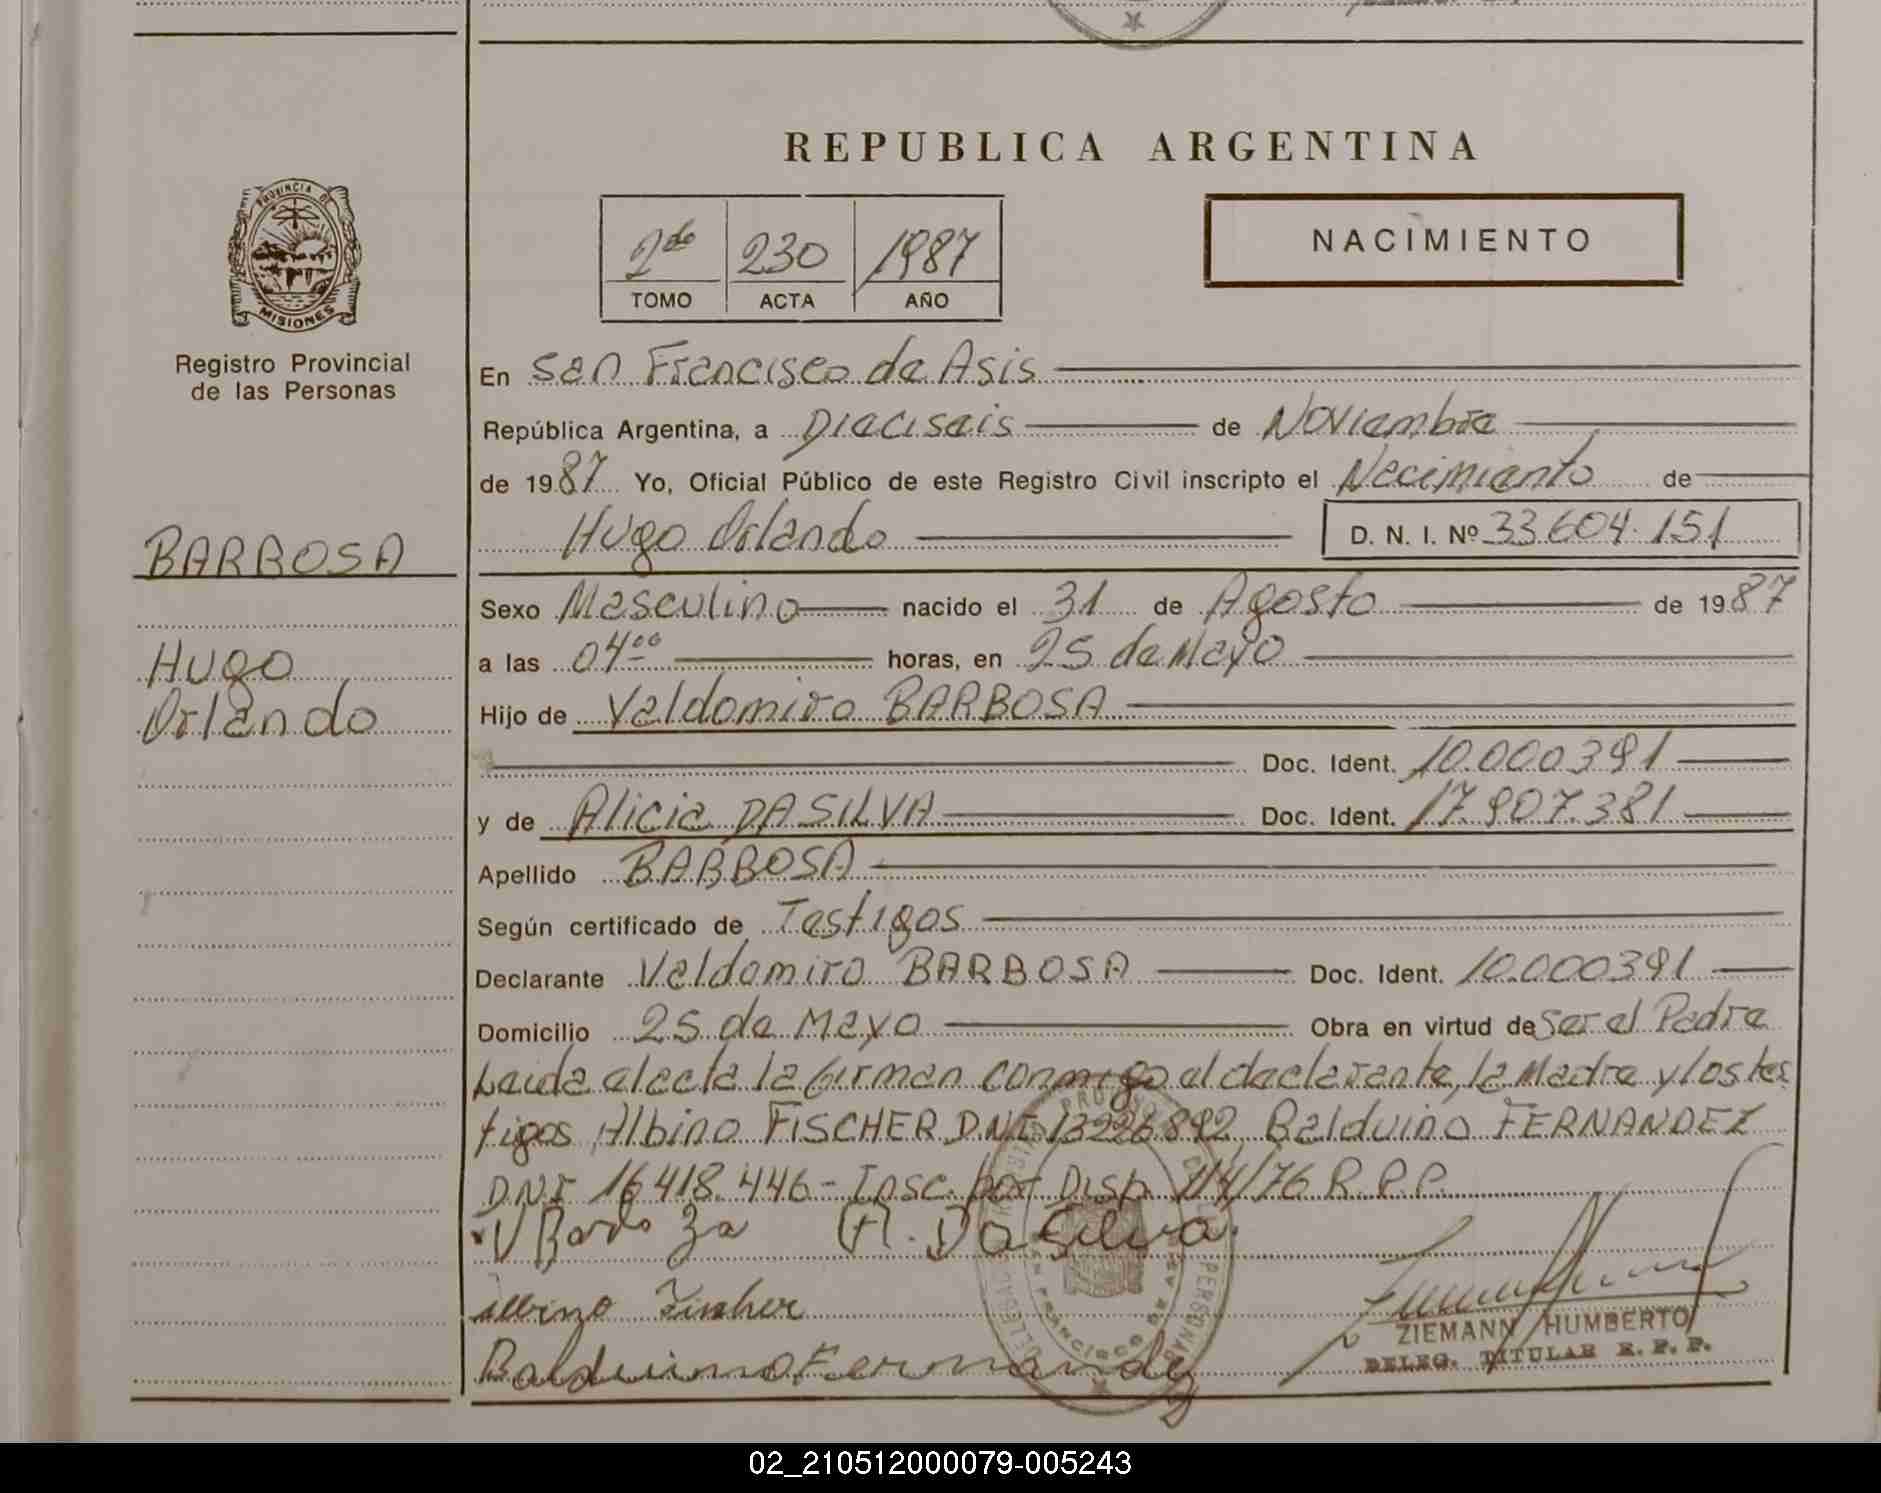 REPUBLICA ARGENTINA
PROVINCIA DE
MISIONES
Registro Provincial
de las Personas
2do 230 1987
TOMO ACTA AÑO
NACIMIENTO
En San Francisco de Asis
República Argentina, a Dieciseis de Noviembre
de 1987 Yo, Oficial Público de este Registro Civil inscripto el Nacimiento de
Hugo Orlando D. N. I. Nº 33.604.151
BARBOSA
Hugo
Orlando
Sexo Masculino nacido el 31 de Agosto de 1987
a las 0400 horas, en 25 de Mayo
Hijo de Valdomiro BARBOSA
Doc. Ident. 10.000391
y de Alicia DA SILVA Doc. Ident. 17.907.381
Apellido BARBOSA
Según certificado de Testigos
Declarante Valdomiro BARBOSA Doc. Ident. 10.000391
Domicilio 25 de Mayo Obra en virtud de Ser el Padre
Leida el acta la firman conmigo el declarante, la Madre y los tes
tigos, Albino FISCHER DNI 13226.892, Balduino FERNANDEZ
DNI 16418.446 - Insc. por Disp. 114/76 R.P.P.
V Barboza A. Da Silva
Albino Fischer
Balduino Fernandez
ZIEMANN HUMBERTO
DELEG. TITULAR R. P. P.
02_210512000079-005243